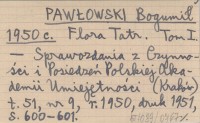 PAWŁOWSKI Bogumił
1950 c. Flora Tatr. Tom I.
— Sprawozdania z Czynno-
ści i Posiedzeń Polskiej Aka-
demii Umiejętności (Kraków)
t. 51, nr 9, r. 1950, druk 1951,
s. 600-601.